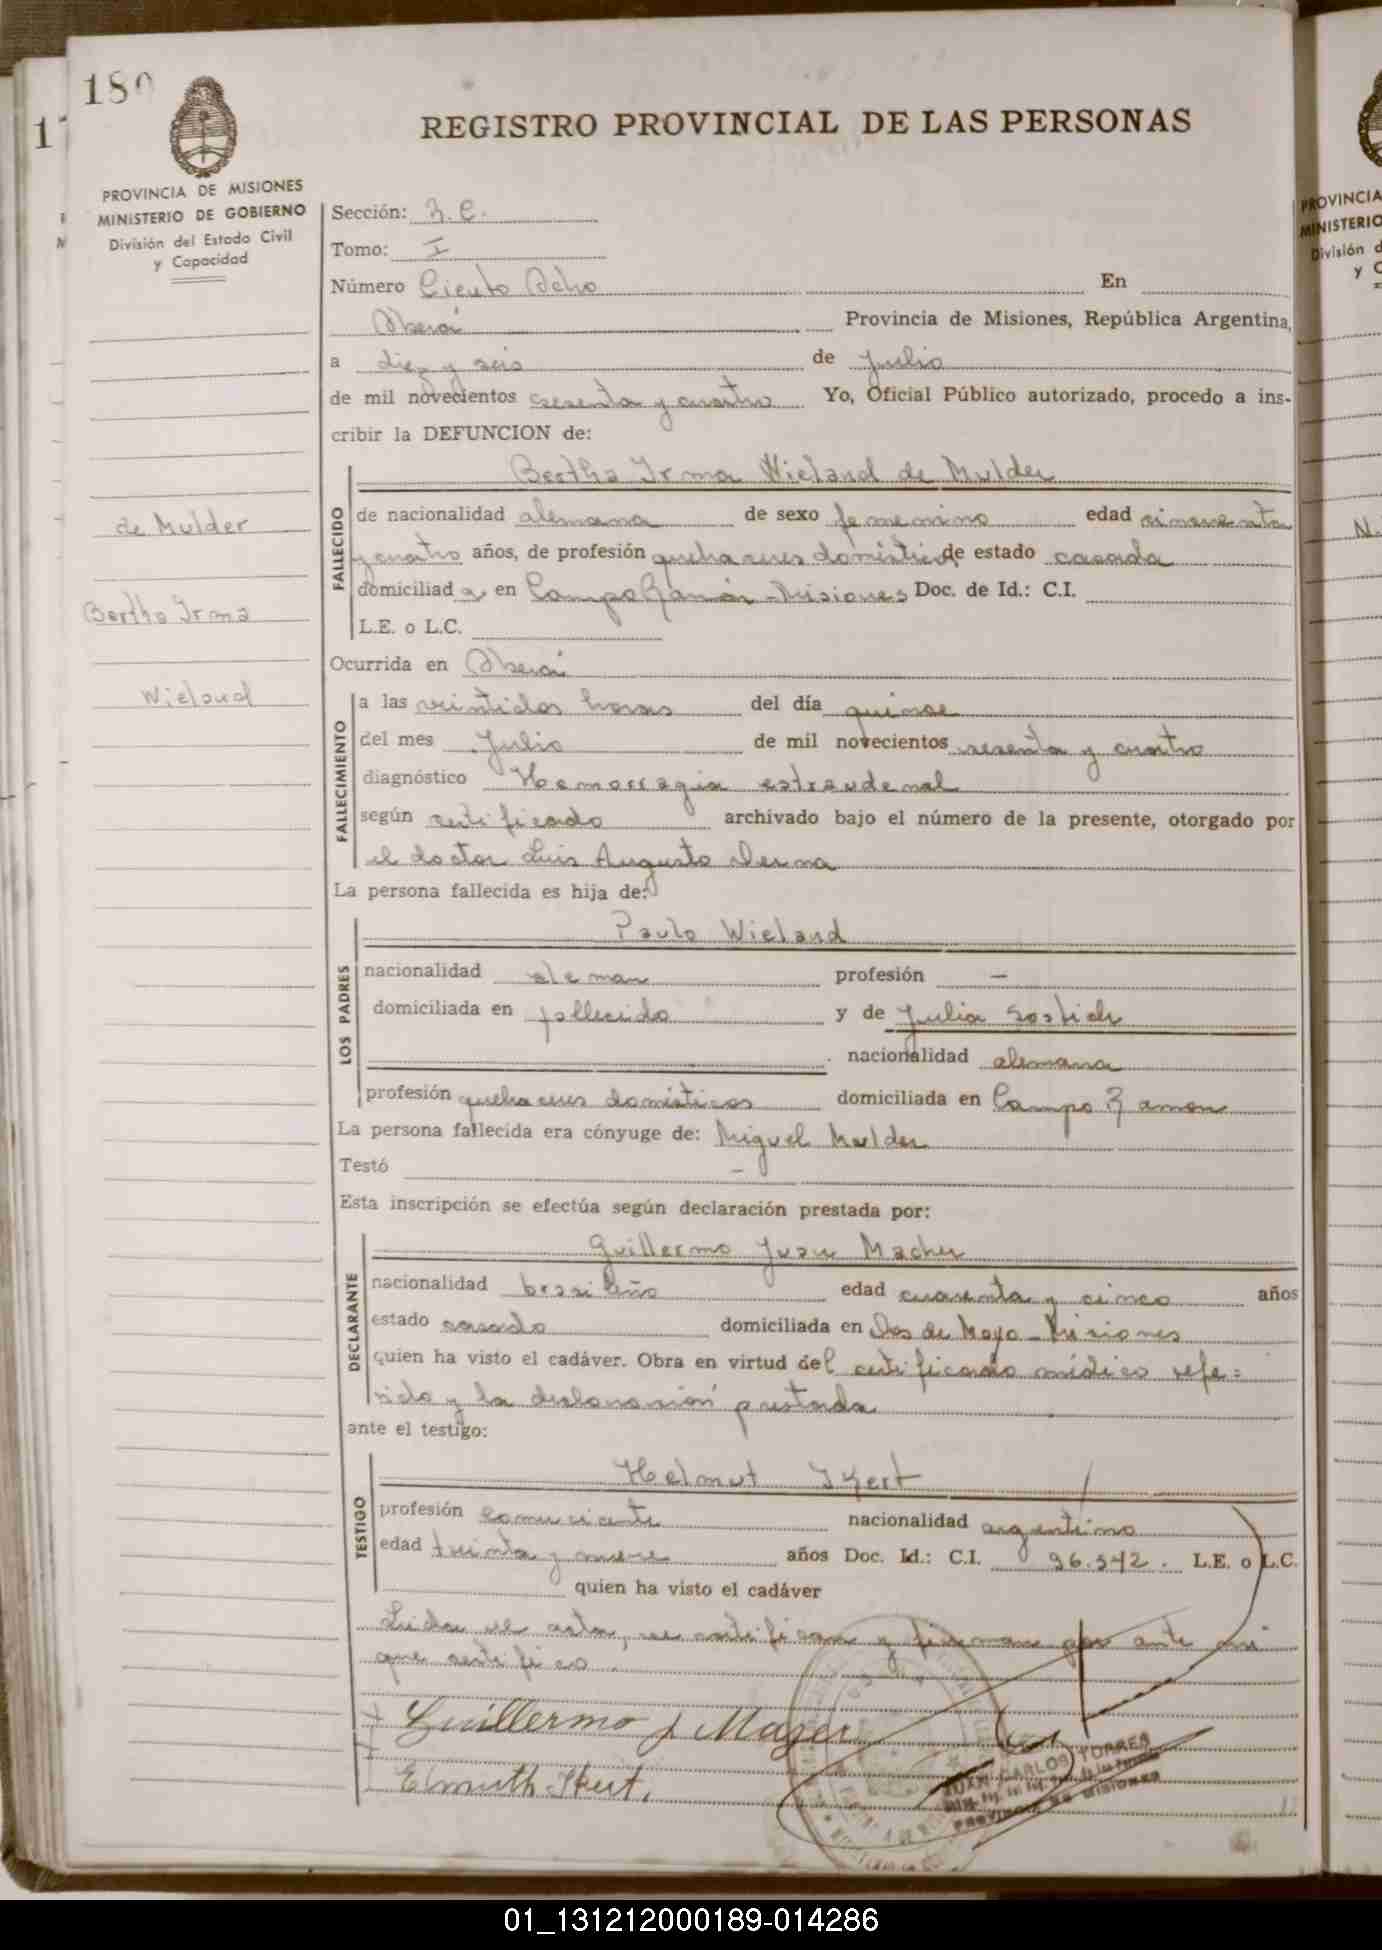 180
REGISTRO PROVINCIAL DE LAS PERSONAS
PROVINCIA DE MISIONES
MINISTERIO DE GOBIERNO
División del Estado Civil
y Capacidad
de Mulder
Bertha Irma
Wieland
Sección:
Tomo: I
Número Ciento Ocho En
Oberá Provincia de Misiones, República Argentina,
a diez y seis de Julio
de mil novecientos sesenta y cuatro Yo, Oficial Público autorizado, procedo a ins-
cribir la DEFUNCION de:
Bertha Irma Wieland de Mulder
FALLECIDO
de nacionalidad alemana de sexo femenino edad cincuenta
y cuatro años, de profesión quehaceres domésticos de estado casada
domiciliad a en Campo Ramón - Misiones Doc. de Id.: C.I.
L.E. o L.C.
Ocurrida en Oberá
FALLECIMIENTO
a las veintidos horas del día quince
del mes Julio de mil novecientos sesenta y cuatro
diagnóstico Hemorragia
según certificado archivado bajo el número de la presente, otorgado por
el doctor Luis Augusto
La persona fallecida es hija de:
Paulo Wieland
LOS PADRES
nacionalidad aleman profesión —
domiciliada en fallecido y de Julia
nacionalidad alemana
profesión quehaceres domésticos domiciliada en Campo Ramon
La persona fallecida era cónyuge de: Miguel Mulder
Testó —
Esta inscripción se efectúa según declaración prestada por:
Guillermo Juan
DECLARANTE
nacionalidad brasileño edad cuarenta y cinco años
estado casado domiciliada en Dos de Mayo - Misiones
quien ha visto el cadáver. Obra en virtud del certificado médico refe=
rido y la declaración prestada
ante el testigo:
Helmut
TESTIGO
profesión comerciante nacionalidad argentino
edad treinta y nueve años Doc. Id.: C.I. 96.342. L.E. o L.C.
quien ha visto el cadáver
Leida el acta, se ratifican y firman por ante mi
que certifico.
Guillermo J. Mayer
JUAN CARLOS TORRES
PROVINCIA DE MISIONES
PROVINCIA
MINISTERIO
División d
y C
01_131212000189-014286